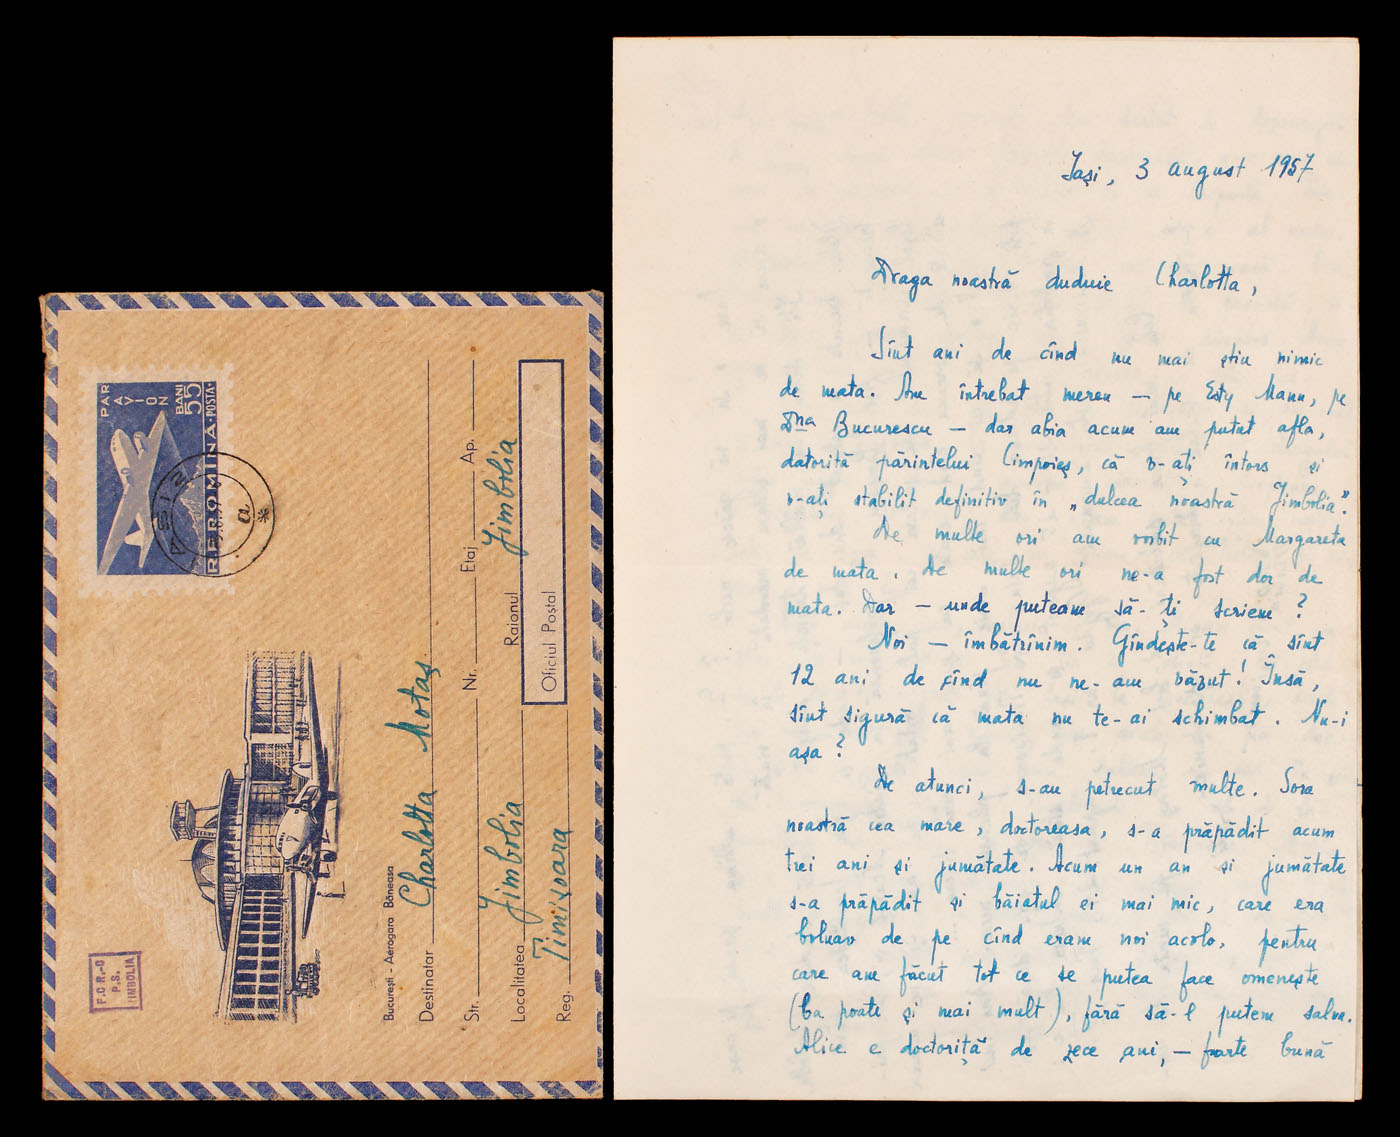 PAR
AVION
BANI
55
POSTA
R.P.ROMINĂ
a
F.C.R.-O
P.S.
JIMBOLIA
București - Aerogara Băneasa
Destinatar Charlotta Motaș
Str. Nr. Etaj Ap.
Localitatea Jimbolia Raionul Jimbolia
Reg. Timișoara Oficiul Poștal
Iași, 3 august 1957
Draga noastră duduie Charlotta,
Sînt ani de cînd nu mai știu nimic
de mata. Am întrebat mereu — pe Esty Mann, pe
Dna Bucurescu — dar abia acum am putut afla,
datorită părintelui Cimpoieș, că v-ați întors și
v-ați stabilit definitiv în „dulcea noastră Jimbolia".
De multe ori am vorbit cu Margareta
de mata. De multe ori ne-a fost dor de
mata. Dar — unde puteam să-ți scriem ?
Noi — îmbătrînim. Gîndește-te că sînt
12 ani de cînd nu ne-am văzut ! Însă,
sînt sigură că mata nu te-ai schimbat. Nu-i
așa ?
De atunci, s-au petrecut multe. Sora
noastră cea mare, doctoreasa, s-a prăpădit acum
trei ani și jumătate. Acum un an și jumătate
s-a prăpădit și băiatul ei mai mic, care era
bolnav de pe cînd eram noi acolo, pentru
care am făcut tot ce se putea face omenește
(ba poate și mai mult), fără să-l putem salva.
Alice e doctoriță de zece ani, — foarte bună